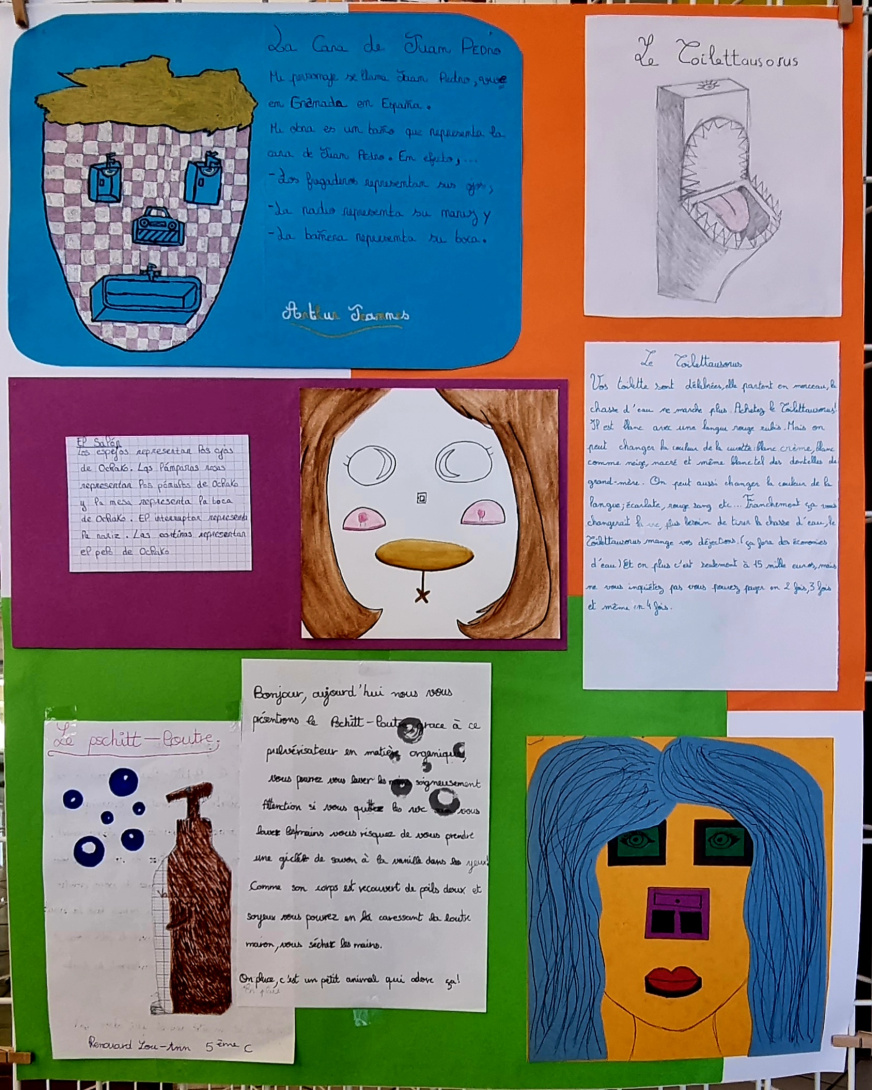 La Cara de Juan PEDRO
Mi personaje se llama Juan Pedro, vive
en Granada en España.
Mi obra es un baño que representa la
cara de Juan Pedro. En efecto, ...
-Los fregaderos representan sus ojos,
-La radio representa su nariz y
-La bañera representa su boca.
Arthur
Le Toilettausorus
Le Toilettausorus
Vos toilette sont délabrées, elle partent en morceau, la
chasse d'eau ne marche plus. Achetez le Toilettausorus!
Il est blanc avec une langue rouge rubis. Mais on
peut changer la couleur de la cuvette: blanc crème, blanc
comme neige, nacré et même blanc tel des dentelles de
grand-mère. On peut aussi changer la couleur de la
langue; écarlate, rouge sang etc... Franchement ça vous
changerait la vie, plus besoin de tirer la chasse d'eau, le
Toilettausorus mange vos déjections! (ça fera des économies
d'eau) Et en plus c'est seulement à 15 mille euros, mais
ne vous inquiétez pas vous pouvez payer en 2 fois, 3 fois
et même en 4 fois.
El Salón
Los espejos representan los ojos
de Ochako. Las lámparas rosas
representan los pómulos de Ochako
y la mesa representa la boca
de Ochako. El interruptor representa
la nariz. Las cortinas representan
el pelo de Ochako
Le pschitt-loutre,
Bonjour, aujourd'hui nous vous
présentons le Pschitt-loutre grace à ce
pulvérisateur en matière organique,
vous pouvez vous laver les soigneusement
Attention si vous quittez les sans vous
laver les mains vous risquez de vous prendre
une giclée de savon à la vanille dans les yeux
Comme son corps est recouvert de poils doux et
soyeux vous pouvez en la caressant la loutre
maron, vous sécher les mains.
En plus, c'est un petit animal qui adore ça!
Renouard Lou-Ann 5ème C